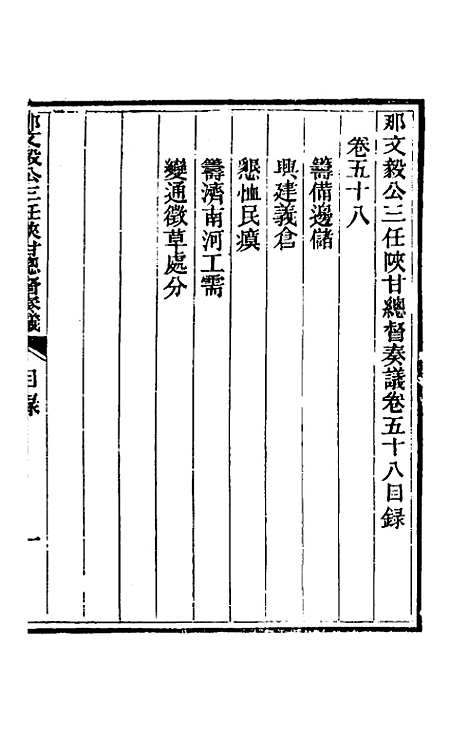 那文毅公三任陜甘總督奏議卷五十八目録
卷五十八
籌備邊儲
興建義倉
懇恤民瘼
籌濟南河工需
變通徵草處分
那文毅公三任陜甘總督奏議
目録
一